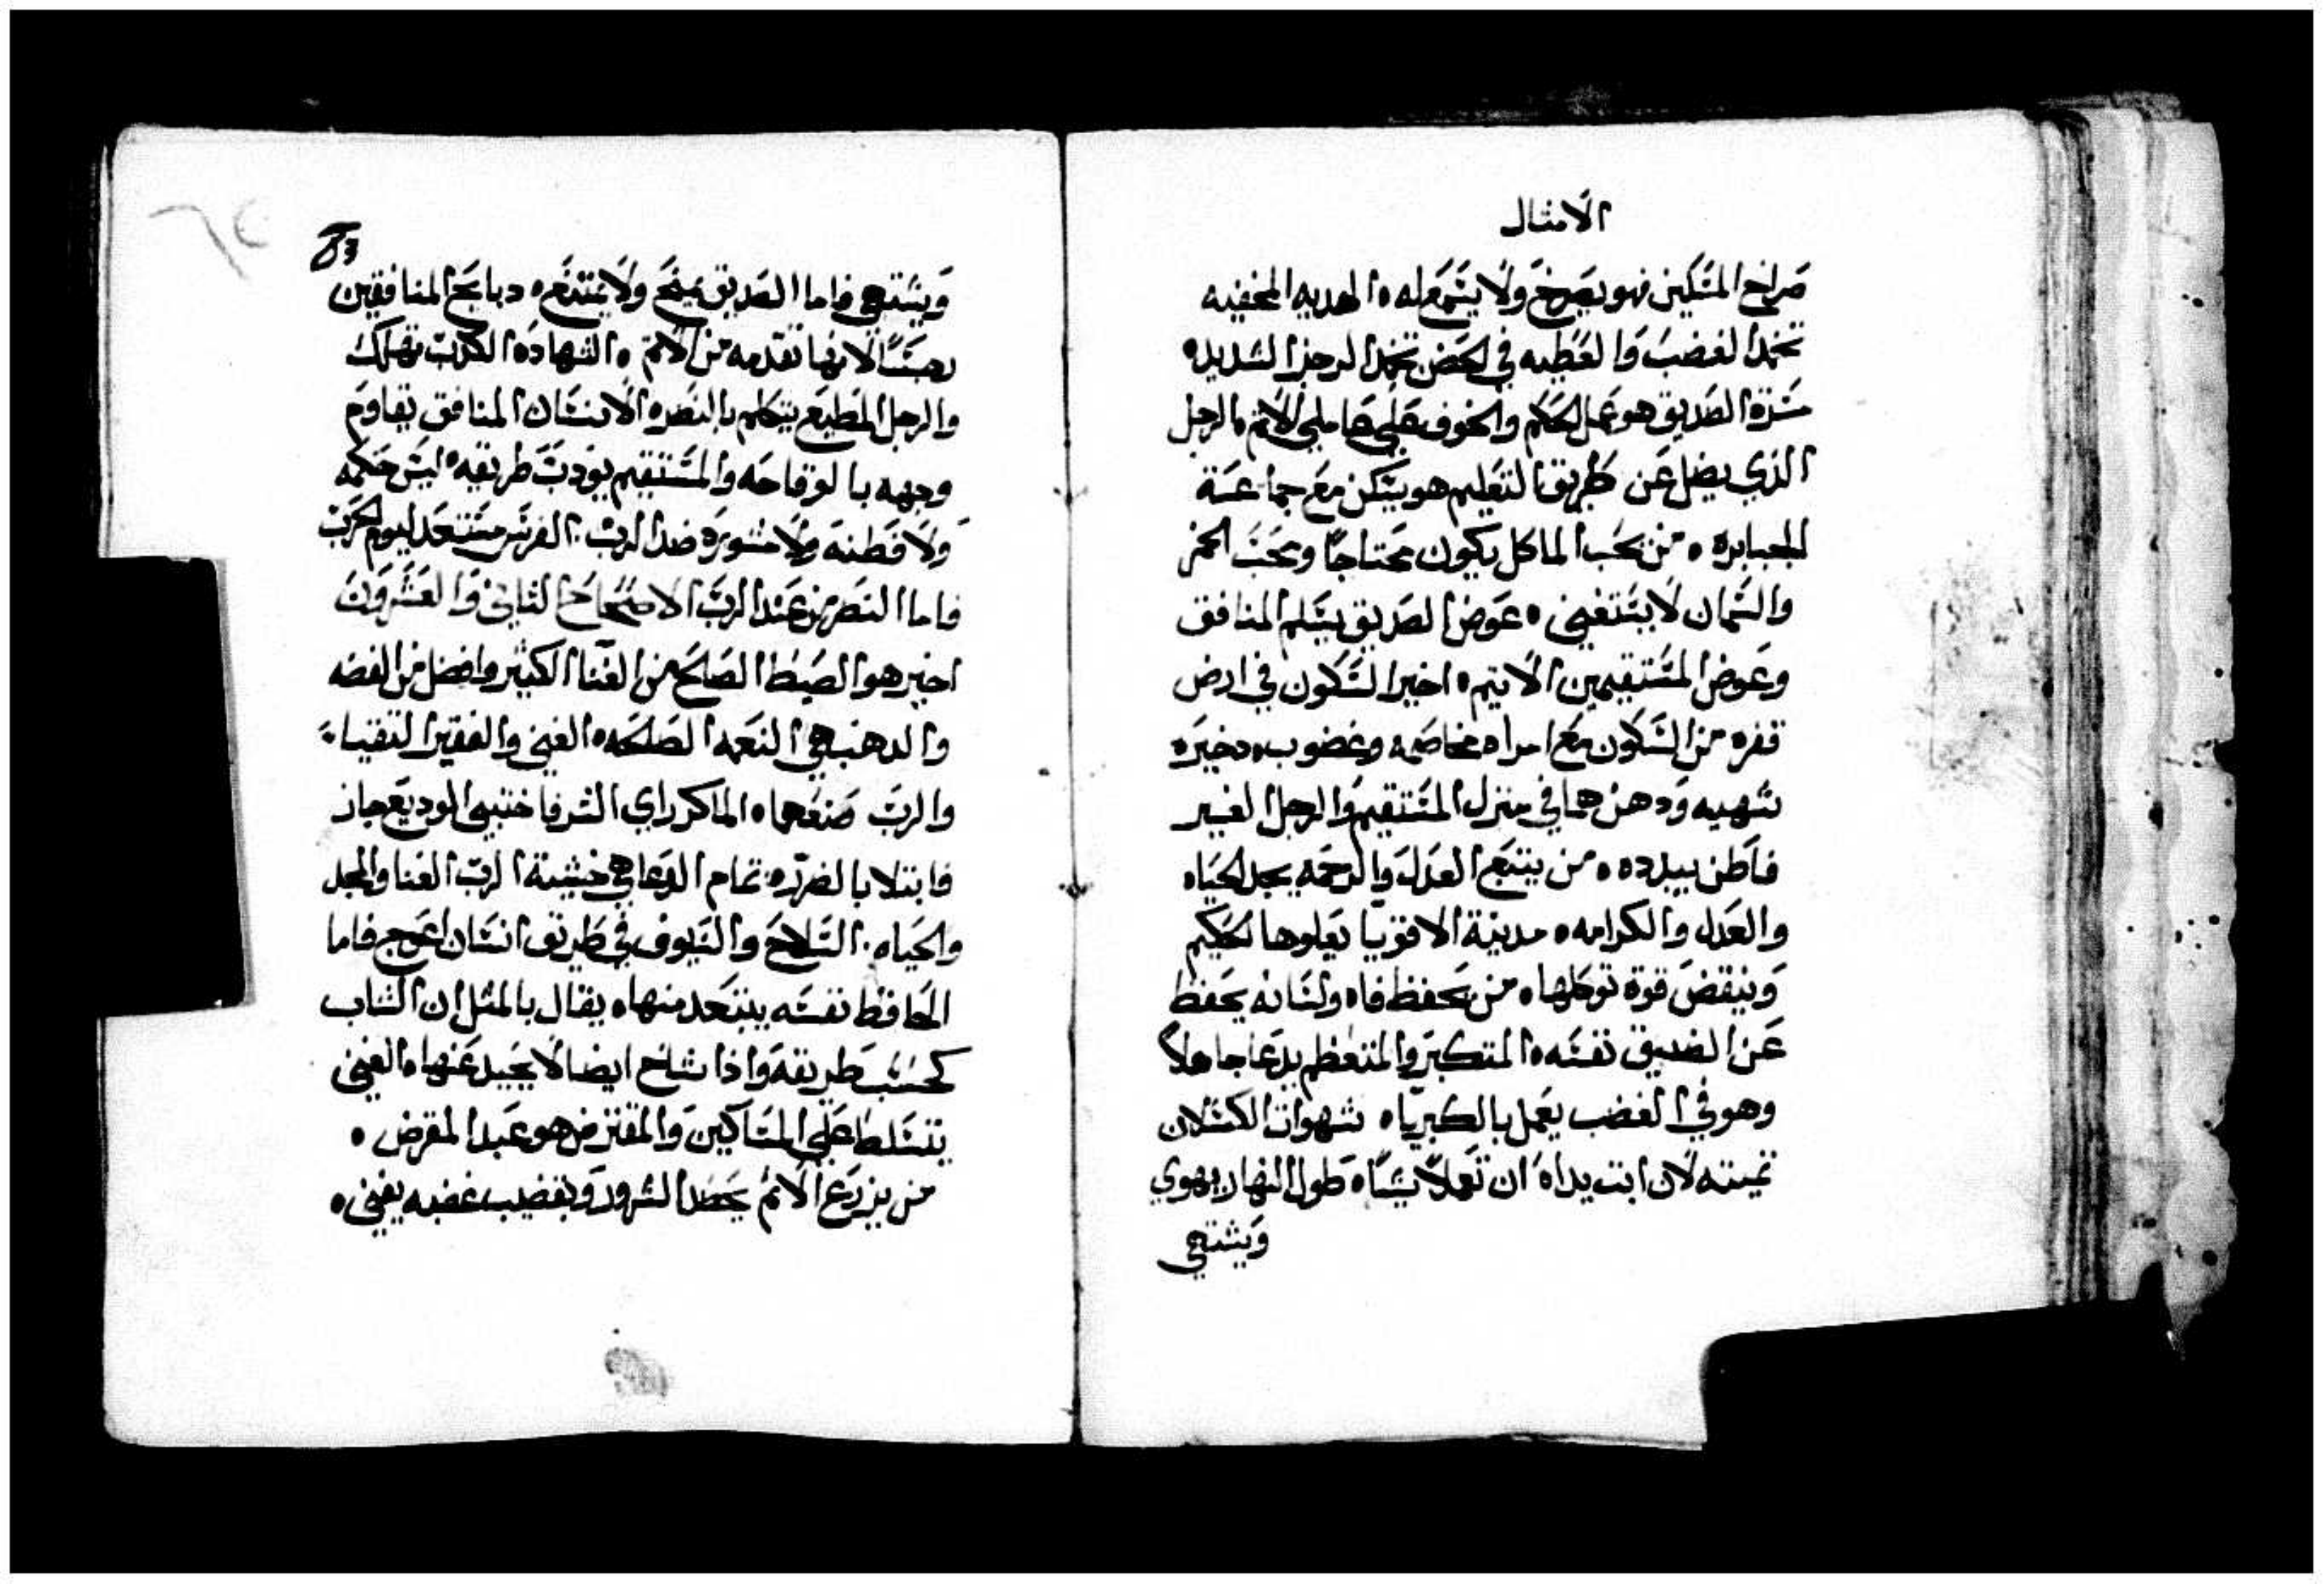 الامثال
صراخ المسكين فهو يصرخ ولا يستمع له ه الهديه المخفيه
تخمد الغضب والعطيه في الحضن تخمد الرجز الشديد ه
مسرة الصديق هو عمل الحكم والخوف علي عاملي الاثم ه الرجل
الذي يضل عن طريق التعليم هو يسكن مع جماعة
الجبابره ه من يحب الماكل يكون محتاجا ومحب الخمر
والسمان لا يستغني ه عوض الصديق يسلم المنافق
وعوض المستقيمين الاتيم ه اخير السكون في ارض
قفره من السكون مع امراه مخاصمه وغضوب ه دخيره
شهيه ودهن هما في منزل المستقيم والرجل الغير
فاطن يبدده ه من يتبع العدل والرحمه يجد الحياه
والعدل والكرامه ه مدينة الاقويا يعلوها الحكيم
وينقض قوة توكلها ه من يحفظ فاه ولسانه يحفظ
عن الضيق نفسه ه المتكبر والمتعظم يدعا جاهلا
وهو في الغضب يعمل بالكبرياء ه شهوات الكسلان
تميته لان ابت يداه ان تعملا شيئا ه طول النهار يهوي
ويشتهي
83
ويشتهي فاما الصديق يمنح ولا يمتنع ه دبايح المنافقين
رجسا لانها تقدمه من الاثم ه الشهاده الكدب تهلك
والرجل المطيع يتكلم بالنصره الانسان المنافق يقاوم
وجهه بالوقاحه والمستقيم يودب طريقه ه ليس حكمه
ولا فطنه ولا مشوره ضد الرب ه الفرس مستعد ليوم الحرب
فاما النصر من عند الرب الاصحاح الثاني والعشرون
اخير هو الصيط الصالح من الغنا الكثير وافضل من الفضه
والدهب هي النعمه الصالحه ه الغني والفقير التقيا ه
والرب صنعهما ه الماكر راي الشر فاختبي الوديع جاز
فابتلا بالضرر ه تمام الدعا هي خشية الرب الغنا والمجد
والحياه ه السلاح والسيوف في طريق انسان اعوج فاما
الحافظ نفسه يبتعد منها ه يقال بالمثل ان الشاب
كحسب طريقه واذا شاخ ايضا لا يحيد عنها ه الغني
يتسلط علي المساكين والمقترض هو عبد المقرض ه
من يزرع الاثم يحصد الشرور وبقضيب غضبه يفني ه